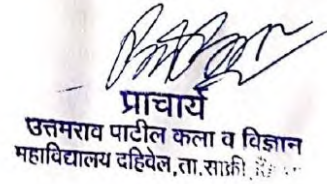 प्राचार्य
उत्तमराव पाटील कला व विज्ञान
महाविद्यालय दहिवेल,ता.साक्री